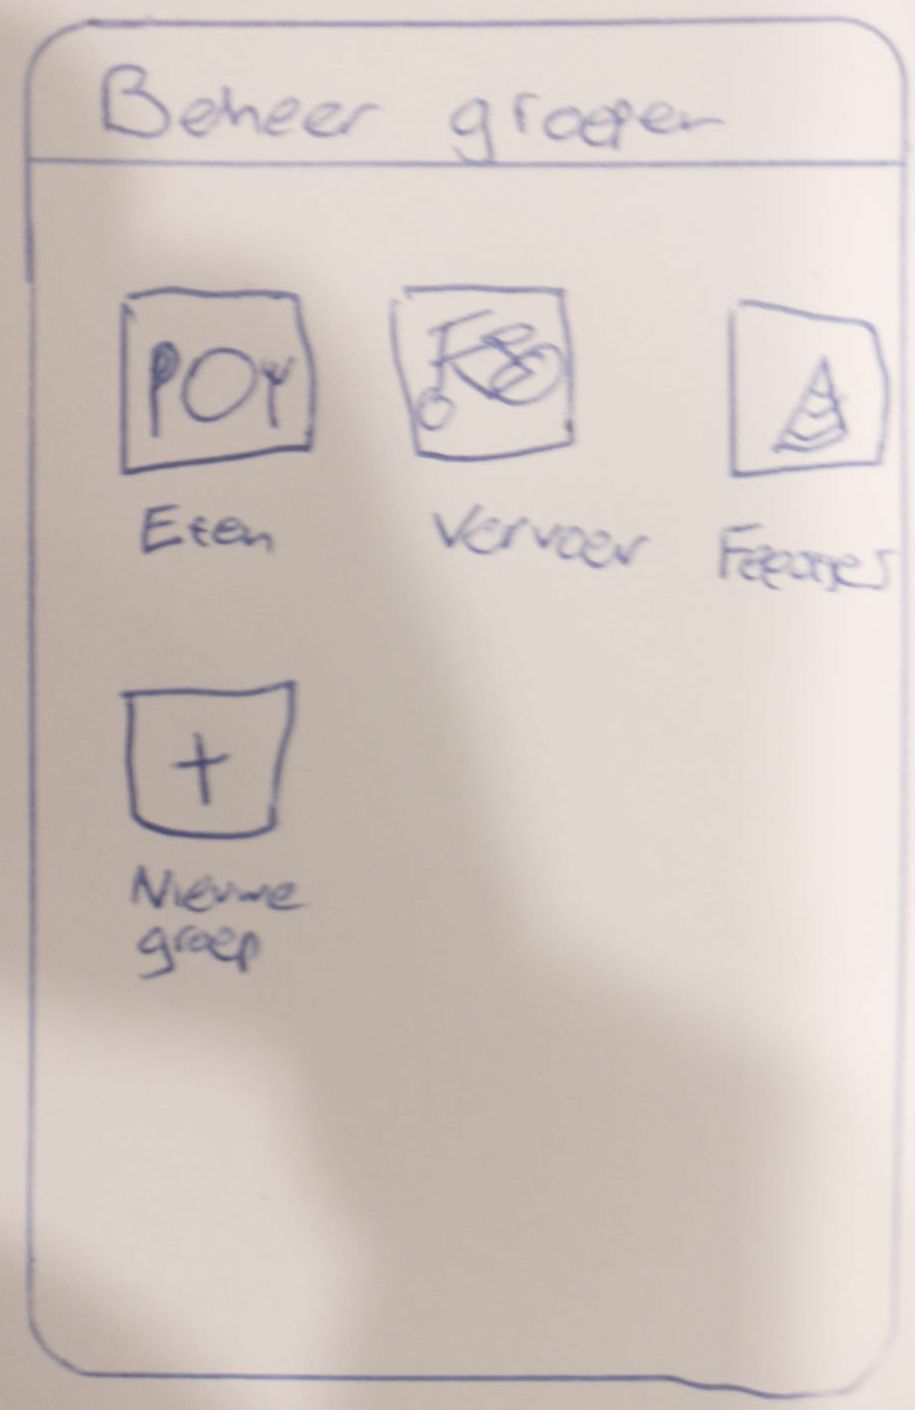 Beheer groepen
Eten
Vervoer
Feestjes
+
Nieuwe
groep